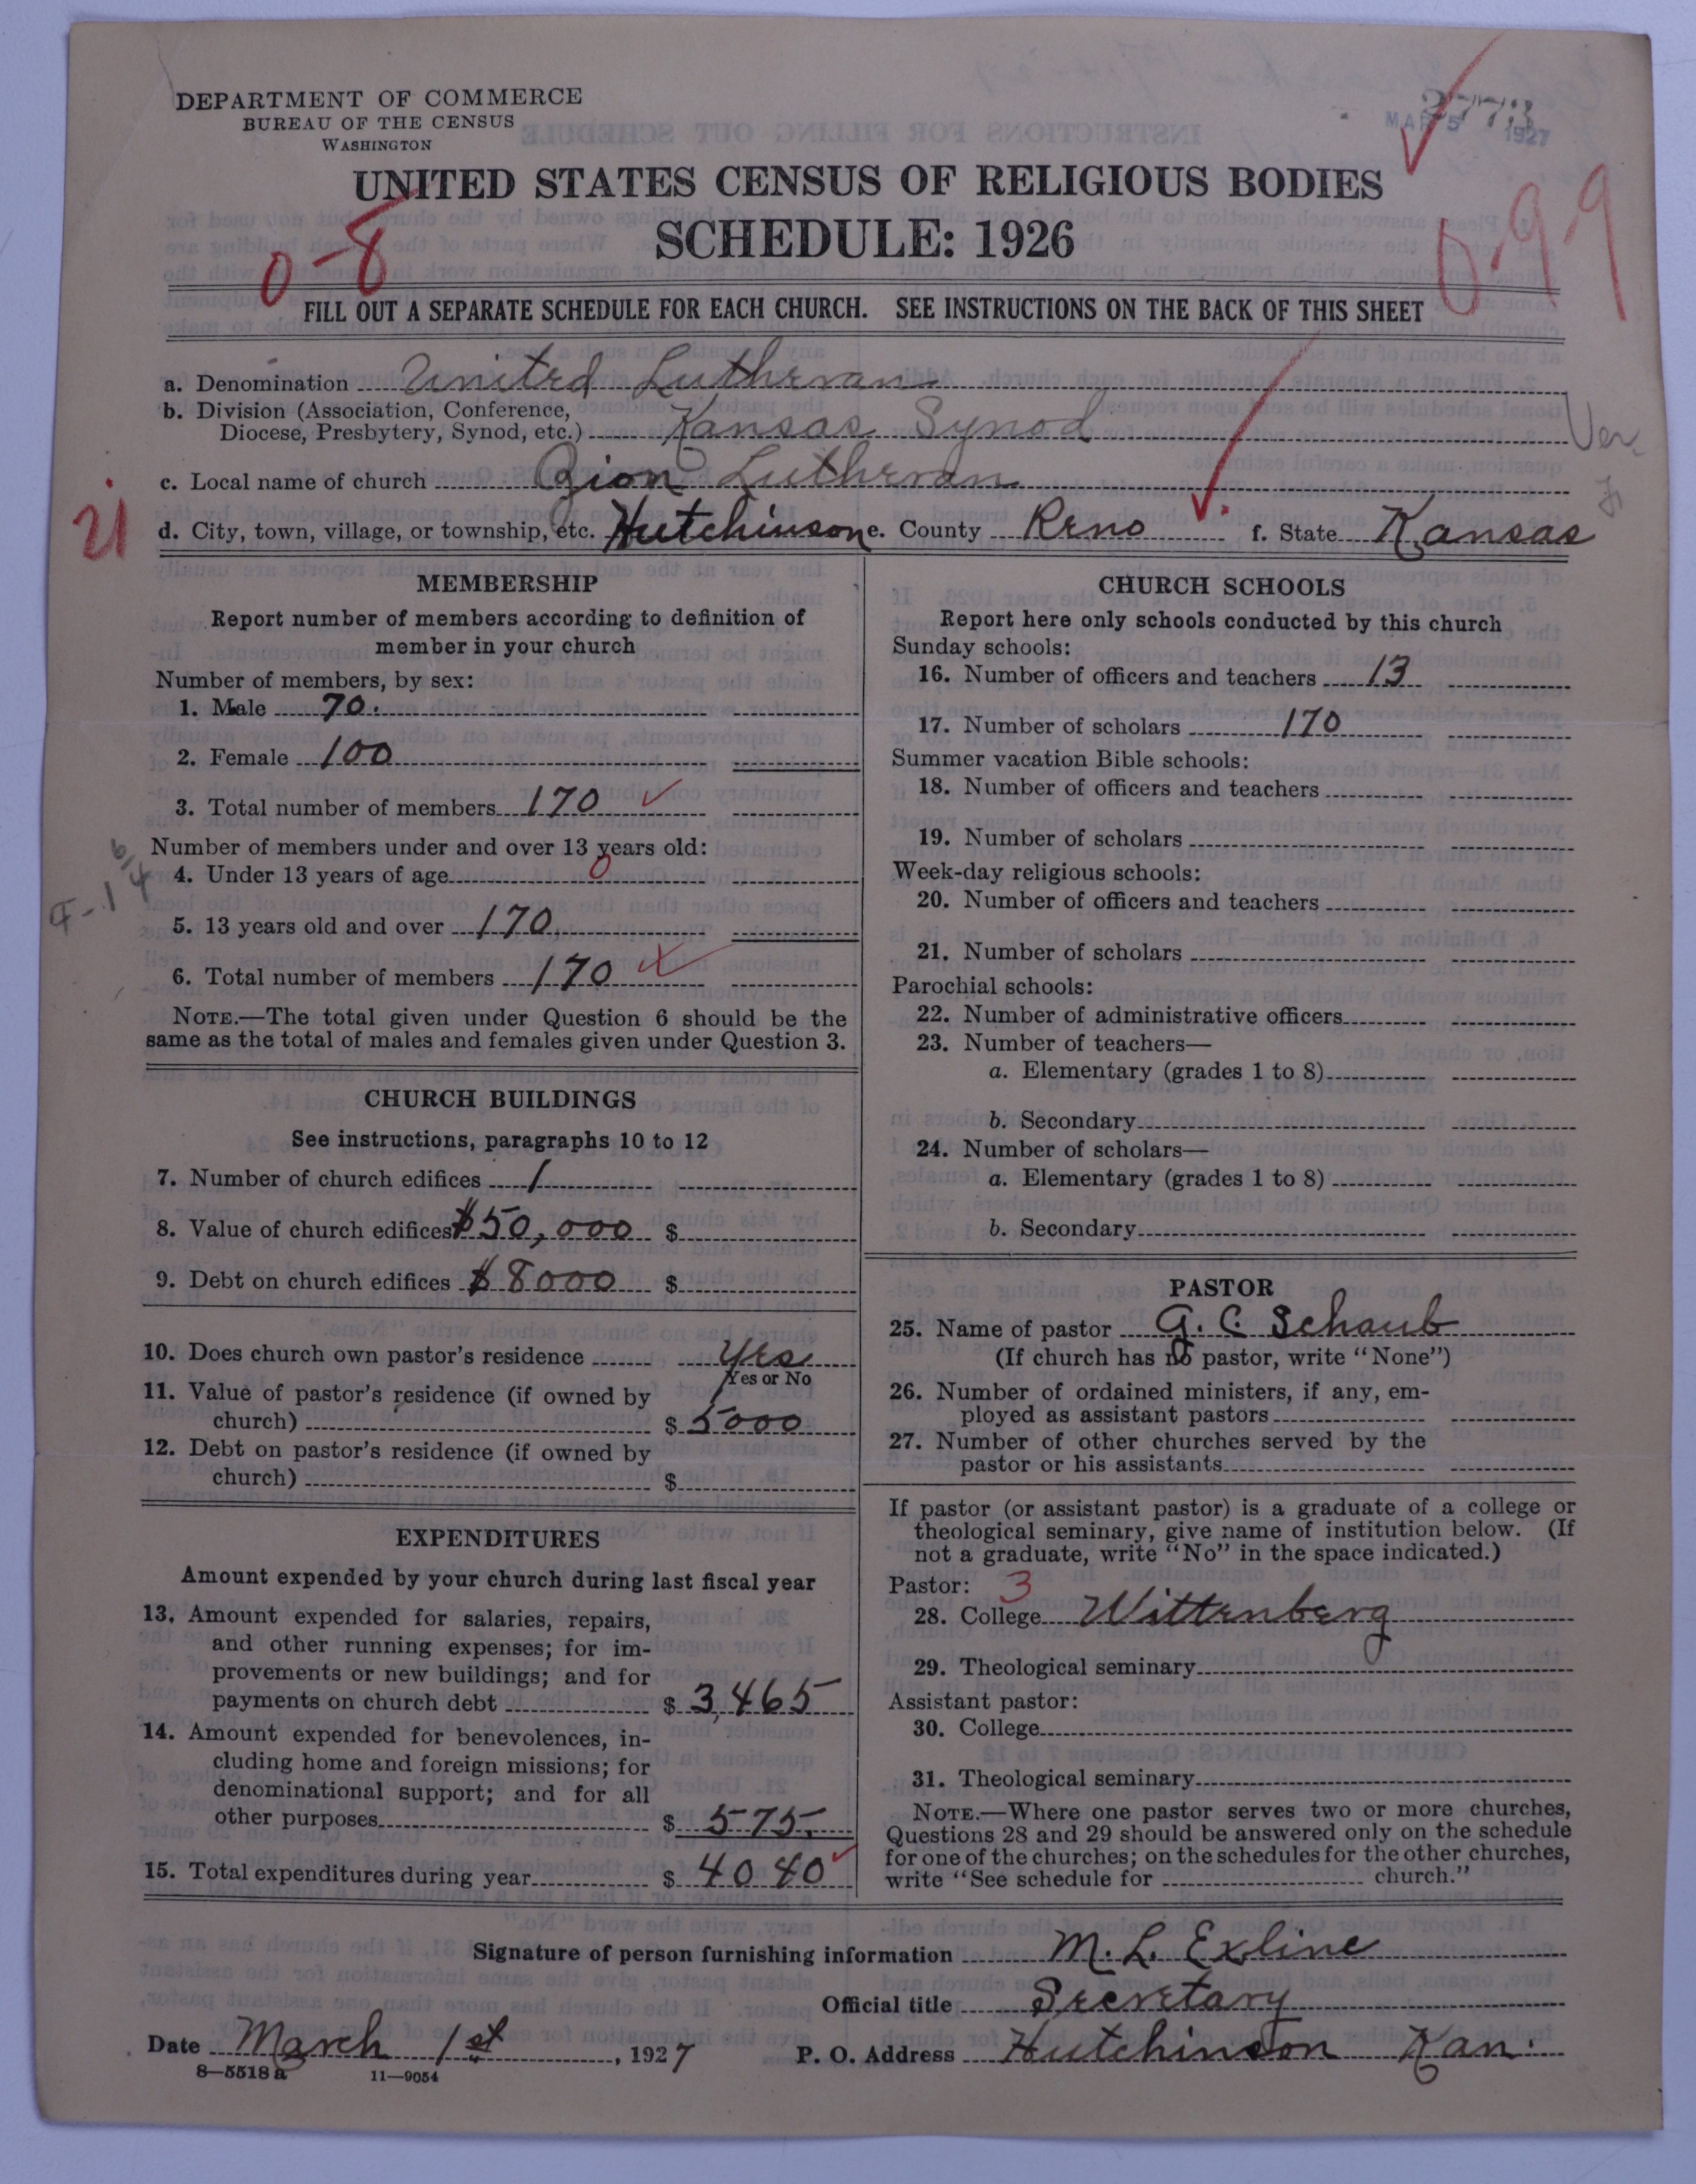 DEPARTMENT OF COMMERCE
BUREAU OF THE CENSUS
WASHINGTON
3773
MAR 5 1927
UNITED STATES CENSUS OF RELIGIOUS BODIES
SCHEDULE: 1926
0-8
0-99
FILL OUT A SEPARATE SCHEDULE FOR EACH CHURCH. SEE INSTRUCTIONS ON THE BACK OF THIS SHEET
a. Denomination United Lutheran
b. Division (Association, Conference,
Diocese, Presbytery, Synod, etc.) Kansas Synod
Ver.
c. Local name of church Zion Lutheran
21
d. City, town, village, or township, etc. Hutchinson e. County Reno f. State Kansas
MEMBERSHIP
Report number of members according to definition of
member in your church
Number of members, by sex:
1. Male 70.
2. Female 100
3. Total number of members 170
Number of members under and over 13 years old:
4. Under 13 years of age 0
5. 13 years old and over 170
6. Total number of members 170
NOTE.—The total given under Question 6 should be the
same as the total of males and females given under Question 3.
CHURCH BUILDINGS
See instructions, paragraphs 10 to 12
7. Number of church edifices 1
8. Value of church edifices $50,000 $
9. Debt on church edifices $8000 $
10. Does church own pastor's residence Yes
Yes or No
11. Value of pastor's residence (if owned by
church) $ 5000
12. Debt on pastor's residence (if owned by
church) $
EXPENDITURES
Amount expended by your church during last fiscal year
13. Amount expended for salaries, repairs,
and other running expenses; for im-
provements or new buildings; and for
payments on church debt $ 3,465
14. Amount expended for benevolences, in-
cluding home and foreign missions; for
denominational support; and for all
other purposes $ 575
15. Total expenditures during year $ 4040
CHURCH SCHOOLS
Report here only schools conducted by this church
Sunday schools:
16. Number of officers and teachers 13
17. Number of scholars 170
Summer vacation Bible schools:
18. Number of officers and teachers
19. Number of scholars
Week-day religious schools:
20. Number of officers and teachers
21. Number of scholars
Parochial schools:
22. Number of administrative officers
23. Number of teachers—
a. Elementary (grades 1 to 8)
b. Secondary
24. Number of scholars—
a. Elementary (grades 1 to 8)
b. Secondary
PASTOR
25. Name of pastor G. C. Schaub
(If church has no pastor, write "None")
26. Number of ordained ministers, if any, em-
ployed as assistant pastors
27. Number of other churches served by the
pastor or his assistants
If pastor (or assistant pastor) is a graduate of a college or
theological seminary, give name of institution below. (If
not a graduate, write "No" in the space indicated.)
Pastor: 3
28. College Wittenberg
29. Theological seminary
Assistant pastor:
30. College
31. Theological seminary
NOTE.—Where one pastor serves two or more churches,
Questions 28 and 29 should be answered only on the schedule
for one of the churches; on the schedules for the other churches,
write "See schedule for church."
Signature of person furnishing information M. L. Exline
Official title Secretary
Date March 1st, 1927 P. O. Address Hutchinson Kan.
8—5518 a 11—9054